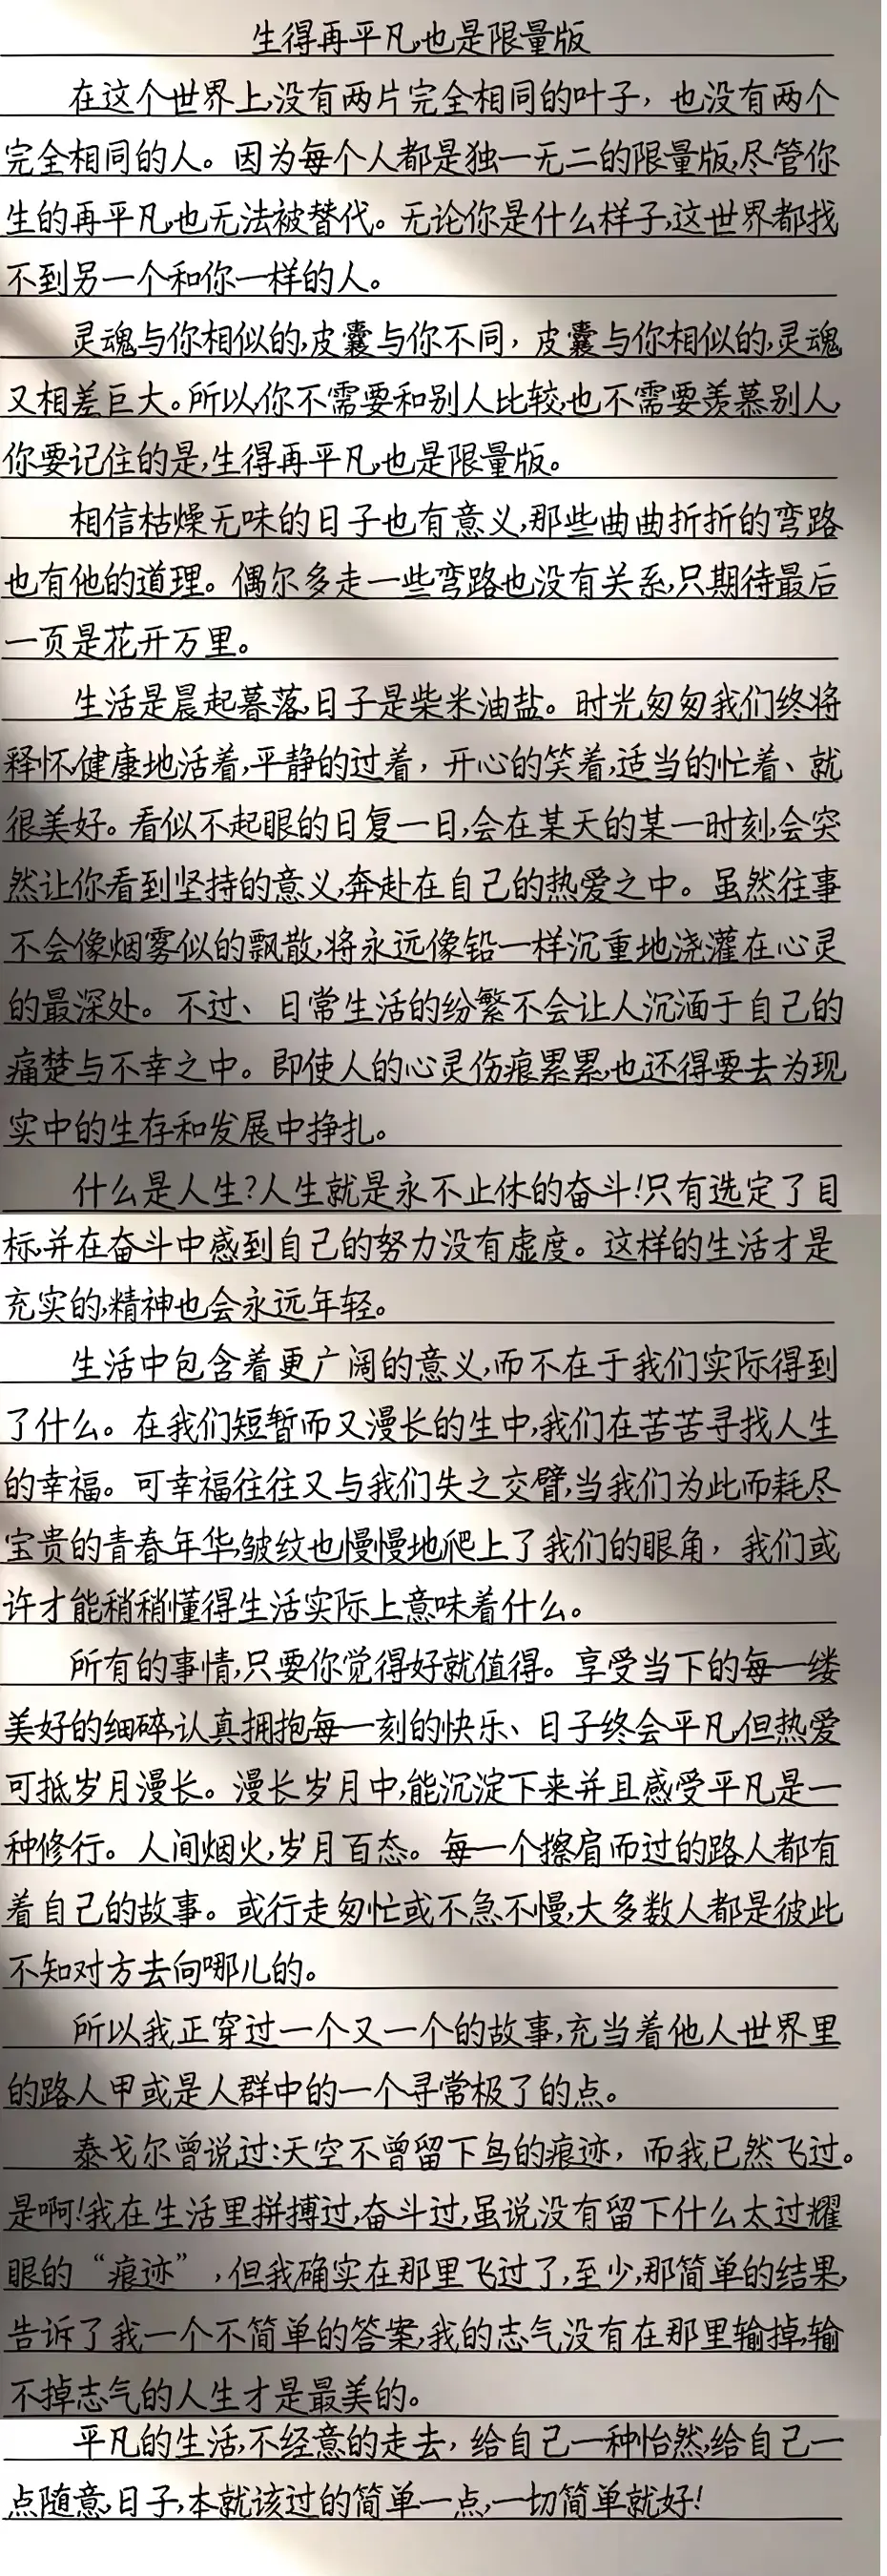 生得再平凡,也是限量版
在这个世界上,没有两片完全相同的叶子，也没有两个
完全相同的人。因为每个人都是独一无二的限量版,尽管你
生的再平凡,也无法被替代。无论你是什么样子,这世界都找
不到另一个和你一样的人。
灵魂与你相似的,皮囊与你不同，皮囊与你相似的,灵魂
又相差巨大。所以,你不需要和别人比较,也不需要羡慕别人,
你要记住的是,生得再平凡,也是限量版。
相信枯燥无味的日子也有意义,那些曲曲折折的弯路
也有他的道理。偶尔多走一些弯路也没有关系,只期待最后
一页是花开万里。
生活是晨起暮落,日子是柴米油盐。时光匆匆我们终将
释怀,健康地活着,平静的过着，开心的笑着,适当的忙着、就
很美好。看似不起眼的日复一日,会在某天的某一时刻,会突
然让你看到坚持的意义,奔赴在自己的热爱之中。虽然往事
不会像烟雾似的飘散,将永远像铅一样沉重地浇灌在心灵
的最深处。不过、日常生活的纷繁不会让人沉湎于自己的
痛楚与不幸之中。即使人的心灵伤痕累累,也还得要去为现
实中的生存和发展中挣扎。
什么是人生?人生就是永不止休的奋斗!只有选定了目
标,并在奋斗中感到自己的努力没有虚度。这样的生活才是
充实的,精神也会永远年轻。
生活中包含着更广阔的意义,而不在于我们实际得到
了什么。在我们短暂而又漫长的生中,我们在苦苦寻找人生
的幸福。可幸福往往又与我们失之交臂,当我们为此而耗尽
宝贵的青春年华,皱纹也慢慢地爬上了我们的眼角，我们或
许才能稍稍懂得生活实际上意味着什么。
所有的事情,只要你觉得好就值得。享受当下的每一缕
美好的细碎,认真拥抱每一刻的快乐、日子终会平凡,但热爱
可抵岁月漫长。漫长岁月中,能沉淀下来并且感受平凡是一
种修行。人间烟火,岁月百态。每一个擦肩而过的路人都有
着自己的故事。或行走匆忙或不急不慢,大多数人都是彼此
不知对方去向哪儿的。
所以我正穿过一个又一个的故事,充当着他人世界里
的路人甲或是人群中的一个寻常极了的点。
泰戈尔曾说过:天空不曾留下鸟的痕迹，而我已然飞过。
是啊!我在生活里拼搏过,奋斗过,虽说没有留下什么太过耀
眼的“痕迹”,但我确实在那里飞过了,至少,那简单的结果,
告诉了我一个不简单的答案,我的志气没有在那里输掉,输
不掉志气的人生才是最美的。
平凡的生活,不经意的走去，给自己一种怡然,给自己一
点随意,日子,本就该过的简单一点,一切简单就好!